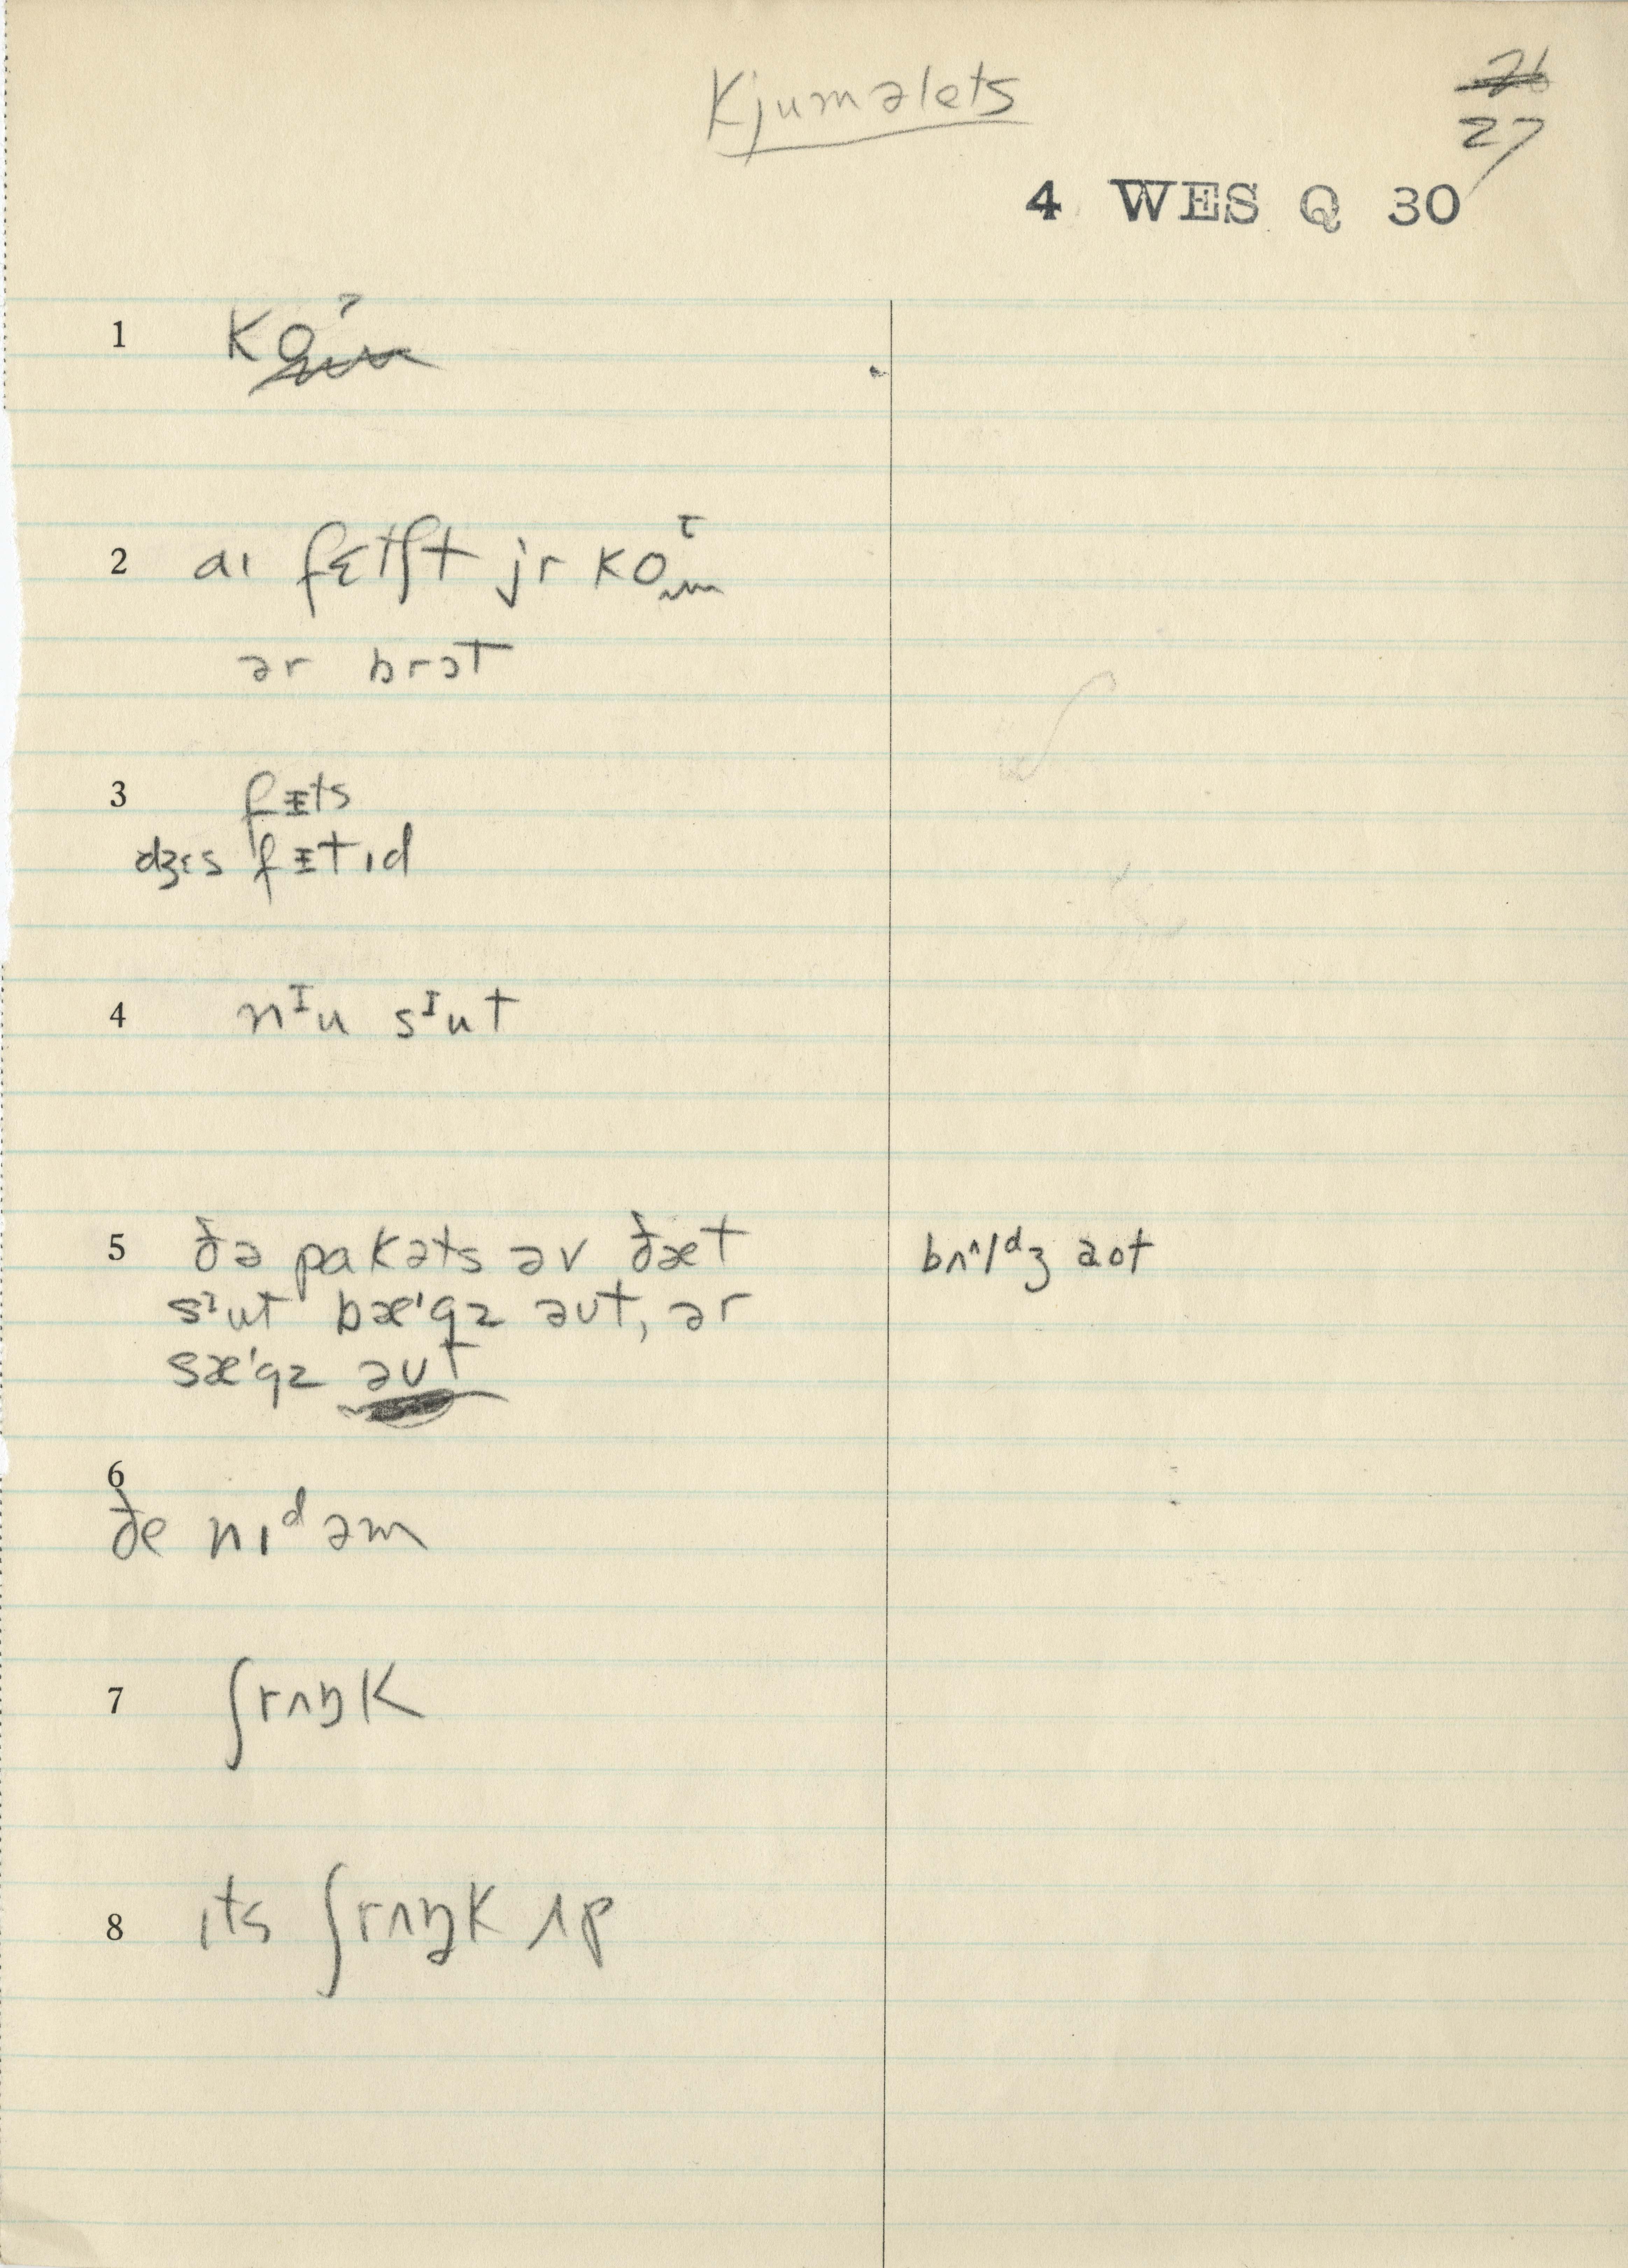 Kjuməlets
26
27
4 WES Q 30
1 ko
2 aɪ fɛtʃt jr ko
ər brɔt
3 fᵻts
dʒɛs fᵻtɪd
4 nᴵu sᴵut
5 ðə pakəts əv ðæt bʌ^ldʒ aot
sᴵut bæ'gz əut, ər
sæ'gz əut
6
ðe nɪᵈəm
7 ʃrʌŋk
8 ɪts ʃrʌŋk ʌp